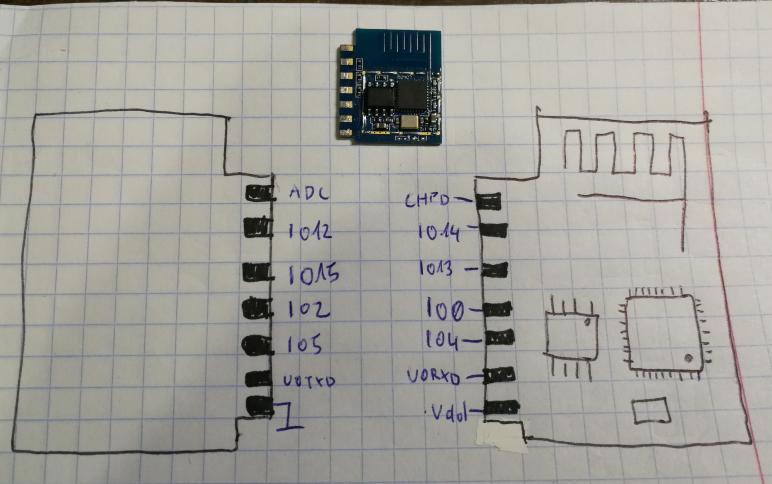 ADC
IO12
IO15
IO2
IO5
UOTXD
CHPD
IO14
IO13
IO0
IO4
UORXD
Vdd